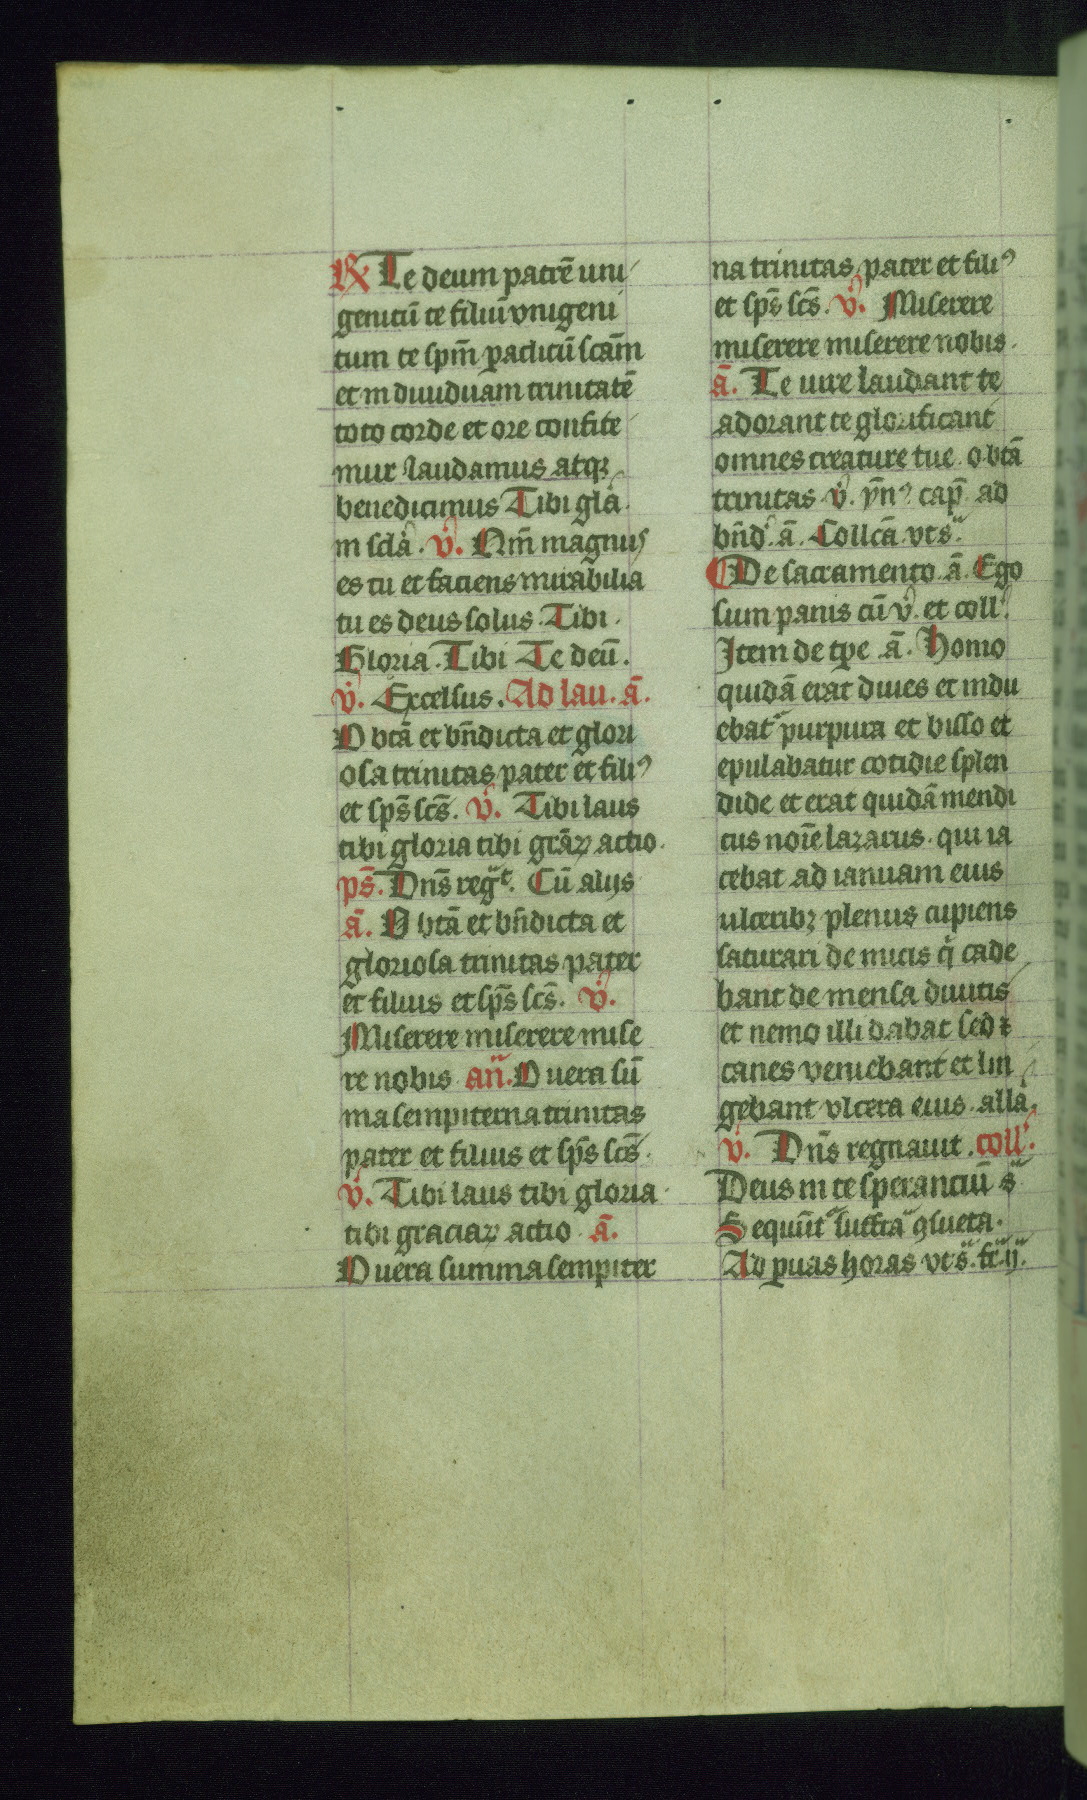 R Te deum patrē uni
genitū te filiū vnigeni
tum te spm̄ paclitū scām
et indiuiduam trinitatē
toto corde et ore confite
mur laudamus atqꝫ
benedicimus Tibi glā.
in sclā. v̄. Qm̄ magnus
es tu et faciens mirabilia
tu es deus solus. Tibi.
Gloria. Tibi Te deū.
v̄. Excelsus. Ad lau. ā.
O btā et bn̄dicta et glori
osa trinitas pater et filiꝰ
et sps̄ scs̄. v̄. Tibi laus
tibi gloria tibi grāꝝ actio.
ps̄. Dns̄ regᵗ. Cū alijs
ā. O btā et bn̄dicta et
gloriosa trinitas pater
et filius et sps̄ scs̄. v̄.
Miserere miserere mise
re nobis an̄. O uera sū
ma sempiterna trinitas
pater et filius et sps̄ scs̄.
v̄. Tibi laus tibi gloria
tibi graciaꝝ actio ā.
O uera summa sempiter
na trinitas pater et filiꝰ
et sps̄ scs̄. v̄. Miserere
miserere miserere nobis.
ā. Te iure laudant te
adorant te glorificant
omnes creature tue o btā
trinitas v̄. ym̄ꝰ cap̄. ad
bn̄d. ā. Collcā. vt s.
De sacramento ā. Ego
sum panis cū v̄. et coll.
Item de tpe ā. Homo
quidā erat diues et indu
ebat purpura et bisso et
epulabatur cotidie splen
dide et erat quidā mendi
cus noīe lazarus. qui ia
cebat ad ianuam eius
ulceribꝫ plenus cupiens
saturari de micis q̄ cade
bant de mensa diuitis
et nemo illi dabat sed ⁊
canes veniebant et lin
gebant vlcera eius. allā.
v̄. Dns̄ regnauit. coll.
Deus in te sperantiū s
Sequūt suffra ꝯsueta.
Ad p̄uas horas vt s. fr̄. ij.